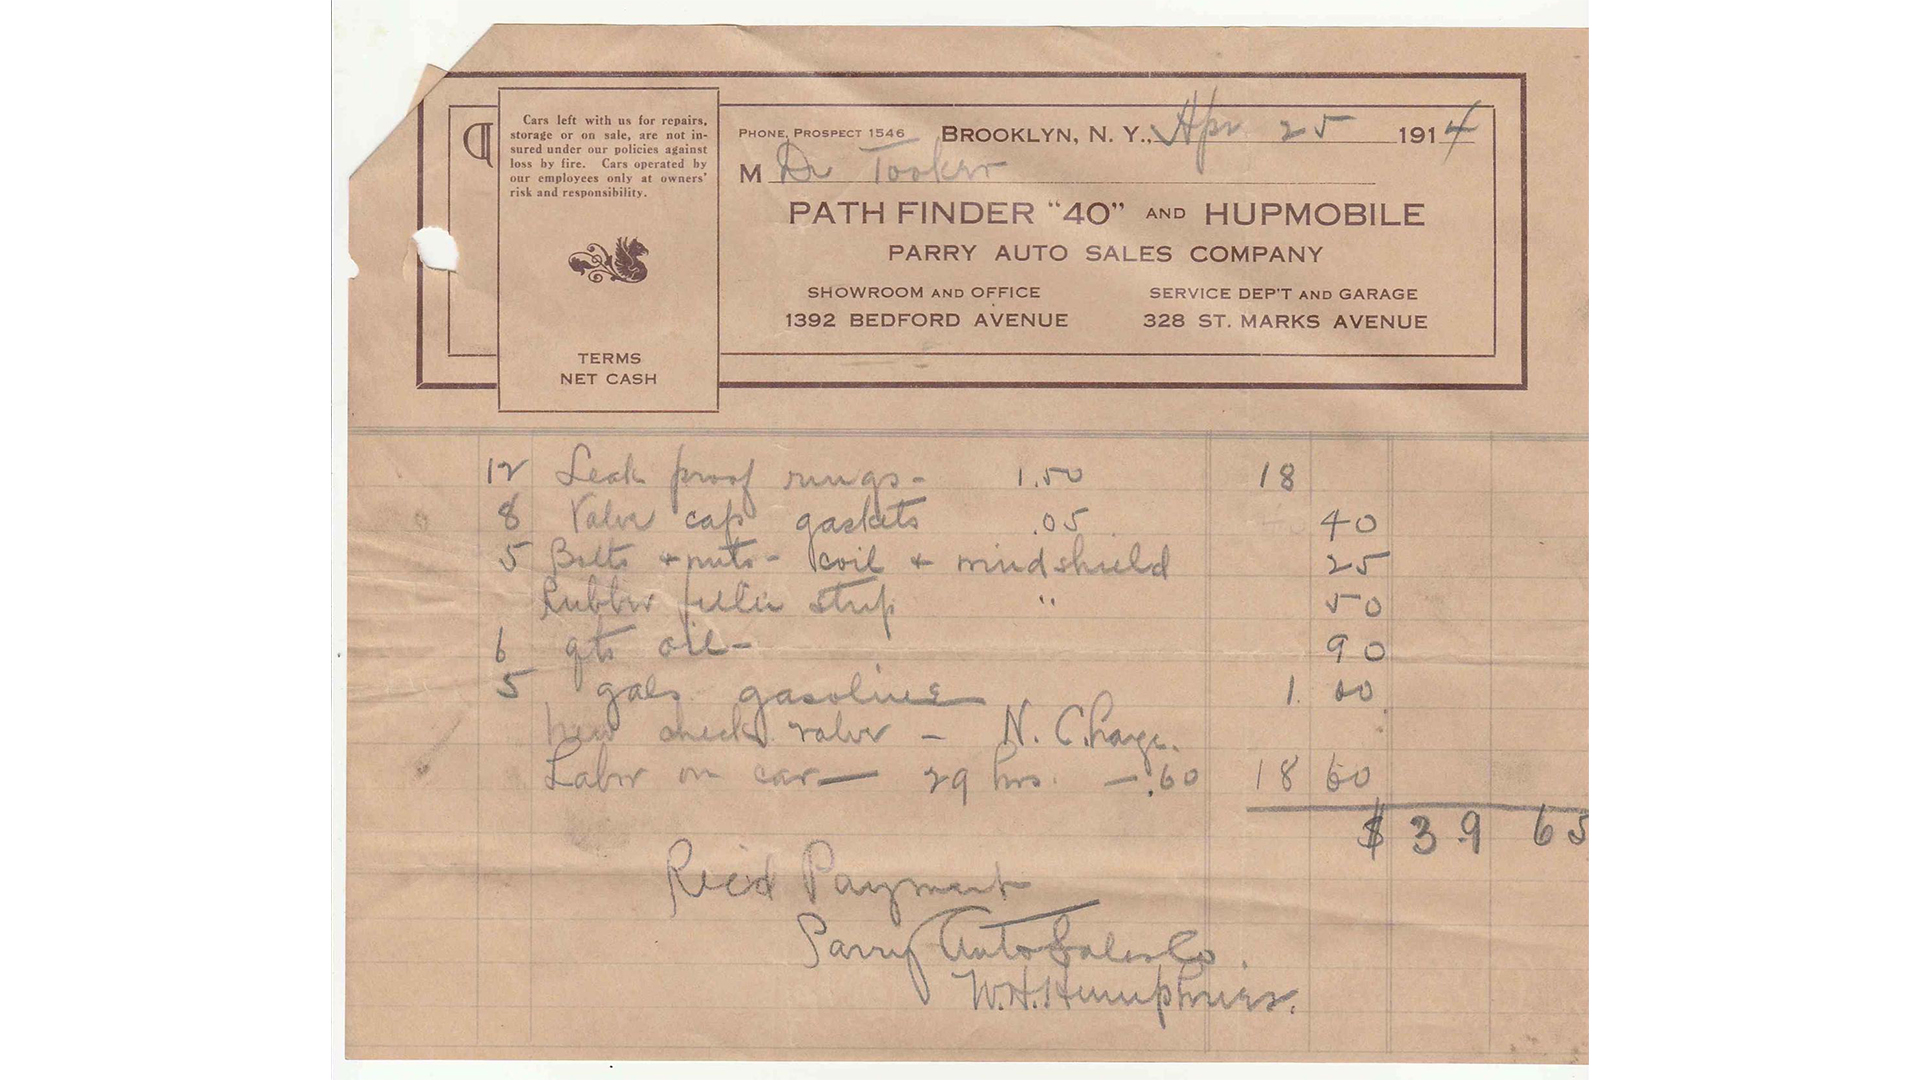 Cars left with us for repairs,
storage or on sale, are not in-
sured under our policies against
loss by fire. Cars operated by
our employees only at owners'
risk and responsibility.
TERMS
NET CASH
PHONE, PROSPECT 1546 BROOKLYN, N. Y., Apr 25 1914
M Dr Tooker
PATHFINDER "40" AND HUPMOBILE
PARRY AUTO SALES COMPANY
SHOWROOM AND OFFICE SERVICE DEP'T AND GARAGE
1392 BEDFORD AVENUE 328 ST. MARKS AVENUE
12 Leak proof rings - 1.50 18
8 Valve cap gaskets .05 40
5 Bolts + nuts - coil + windshield 25
Rubber filler strip " 50
6 qts oil - 90
5 gals gasoline 1. 00
New check valve - N. Charge.
Labor on car — 29 hrs. - .60 18 60
$ 39 65
Rec'd Payment
Parry Auto Sales Co.
W. H. Humphries.